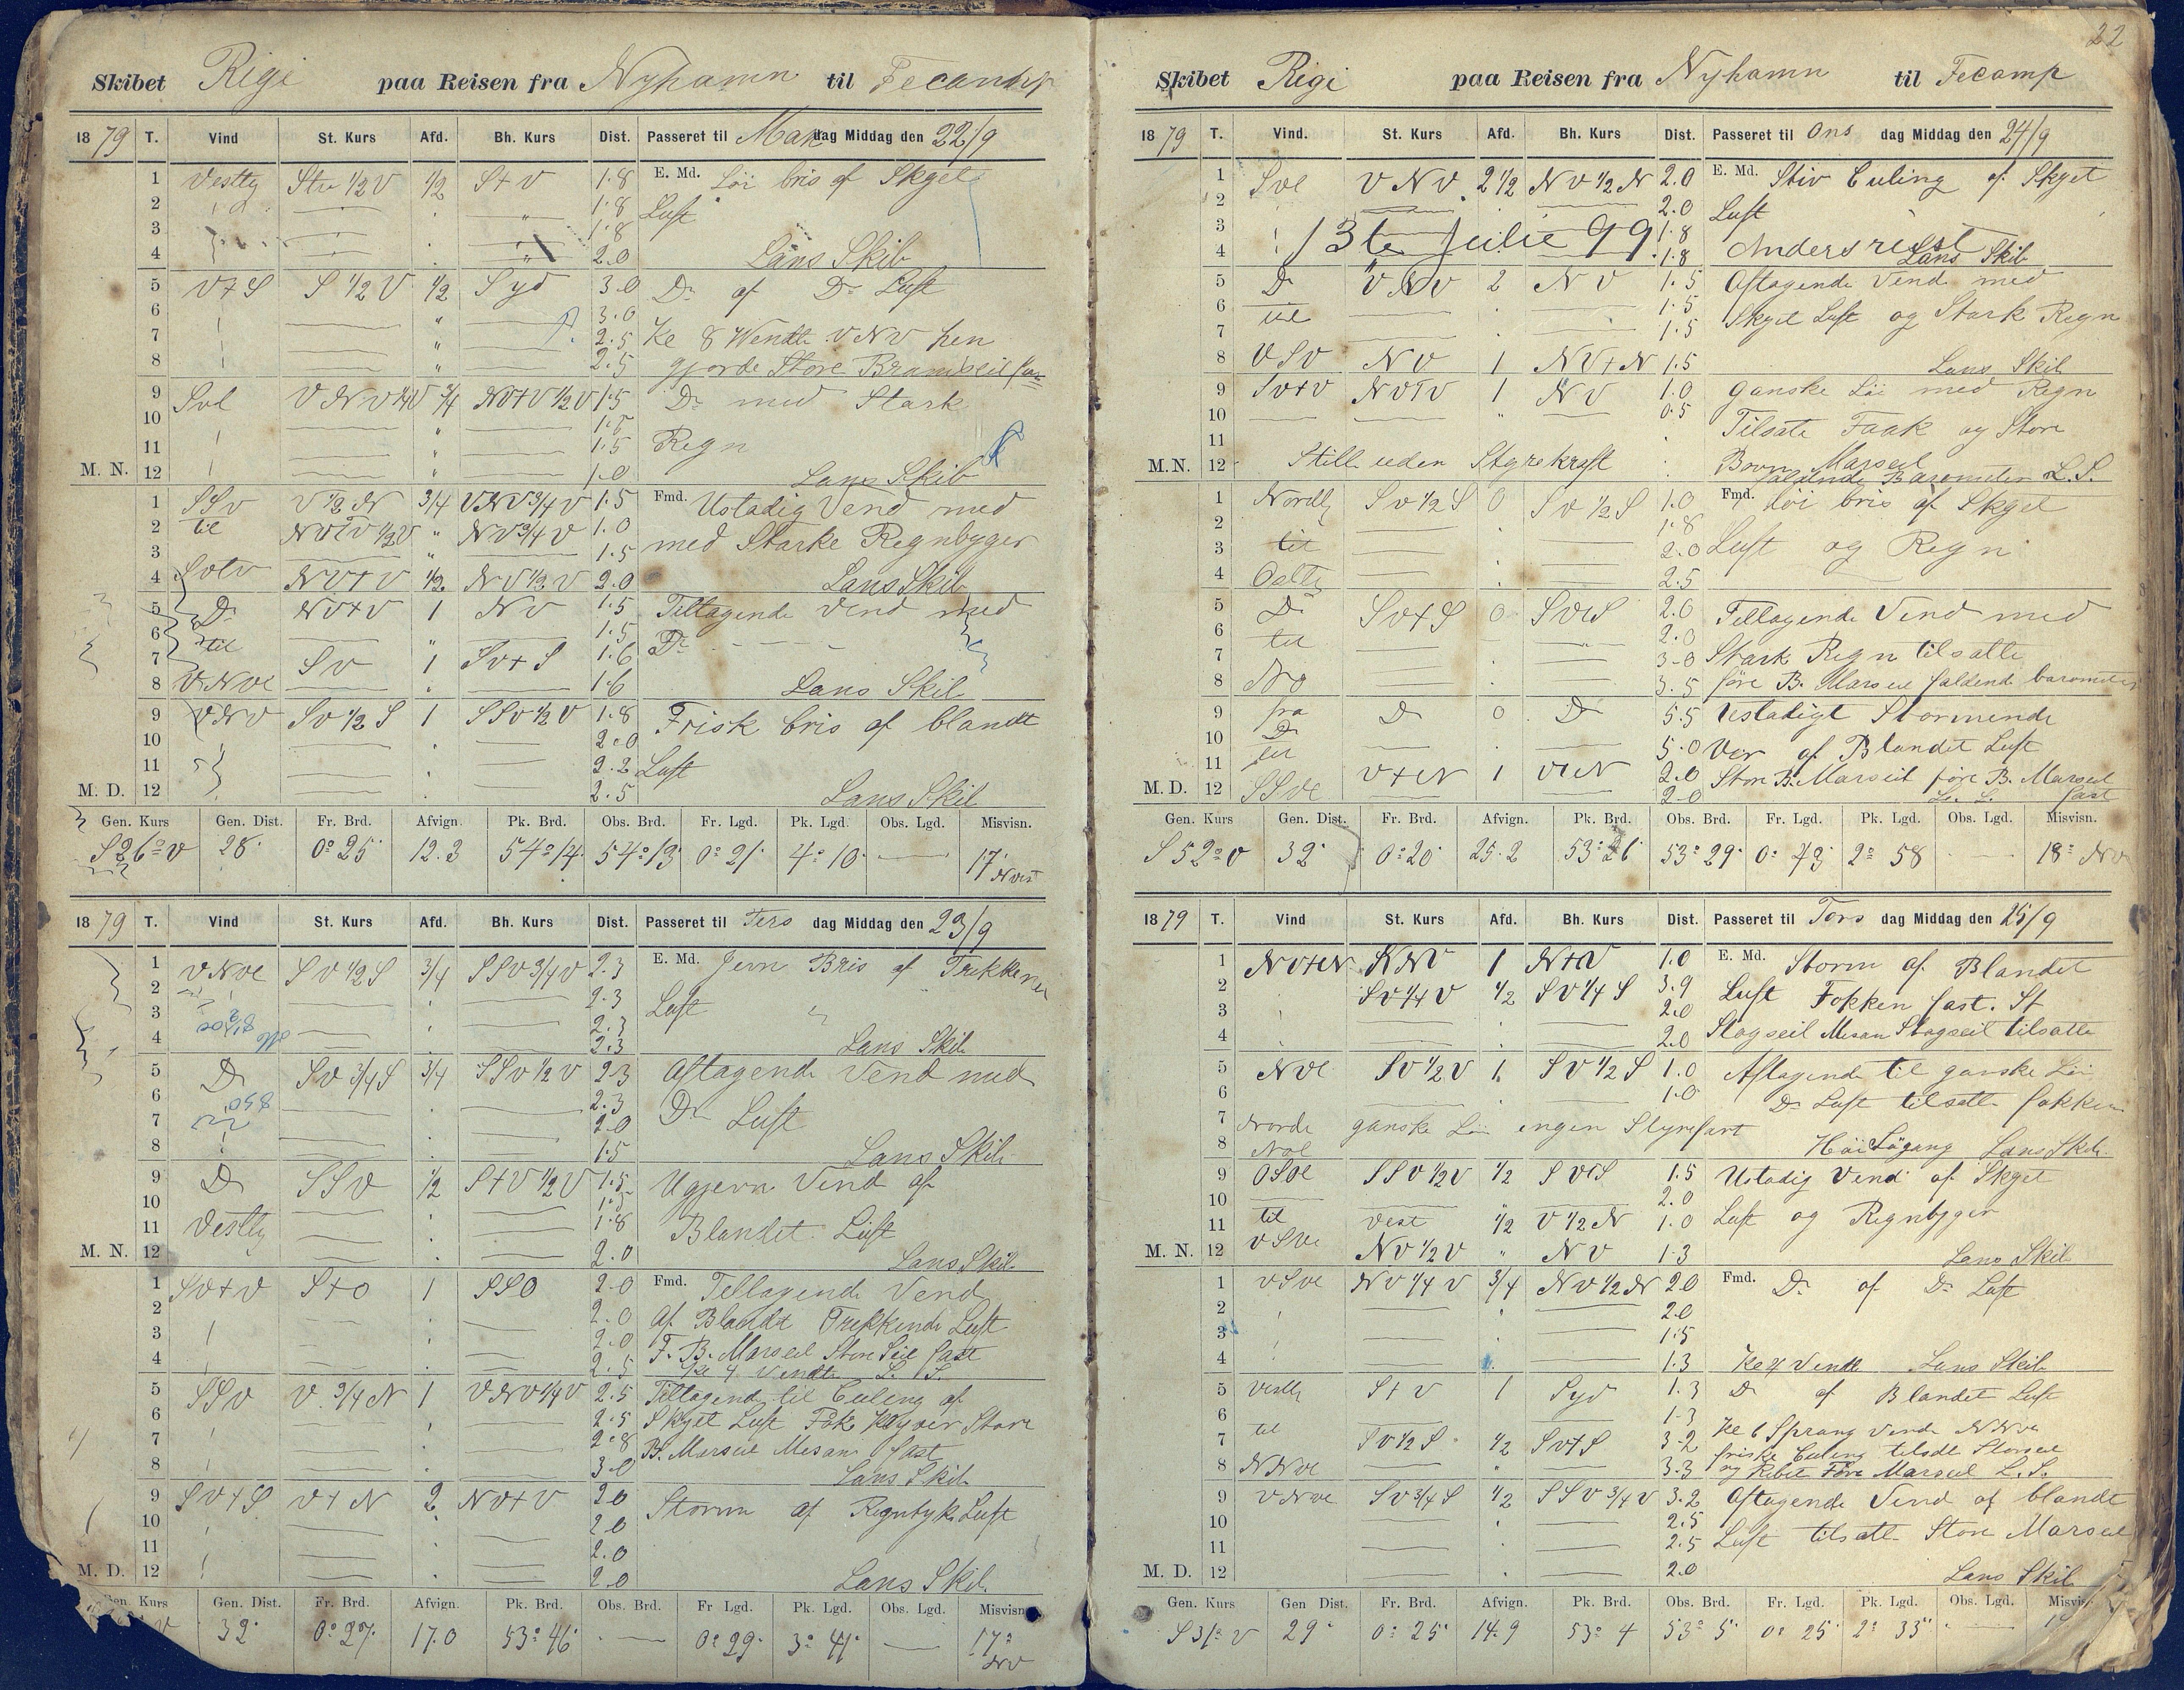 Skibet Rigi paa Reisen fra Nyhamn til Fecamp
1879 T. Vind St. Kurs Afd. Bh. Kurs Dist. Passeret til Mandag Middag den 22/9
1 Vestlig Stv 1/2 V 1/2 S+V 1.8 E. Md. Löi bris af Skyet
2 1.8 Luft
3 1.8
4 2.0 Läns Skib
5 V+S S 1/2 V 1/2 Syd 3.0 Do af Do Luft
6 3.0
7 2.5 Kl 8 Wendte VNV hen
8 2.5 gjorde Store Bramseil fast
9 Svl VNV 1/4 V 3/4 NV+V 1/2 V 1.5 Do med Stark
10 1.5
11 1.5 Regn
M. N. 12 1.0 Lans Skib
1 SSv V 1/2 N 3/4 VNV 3/4 V 1.5 Fmd. Ustadig Vend med
2 til NVTV 1/2 V " NV 3/4 V 1.0
3 " 1.5 med Starke Regnbyger
4 Svtv NV+V 1/2 NV 1/2 V 2.0 Lans Skib
5 Do NV+V 1 NV 1.5 Tiltagende Vend med
6 til " 1.5 Do
7 SV 1 SV+S 1.6
8 VNVl 1.6 Lans Skib
9 VNV SV 1/2 S 1 SSV 1/2 V 1.8 Frisk bris af blandt
10 2.0
11 2.2 Luft
M. D. 12 2.5 Lans Skib
Gen. Kurs Gen. Dist. Fr. Brd. Afvign. Pk. Brd. Obs. Brd. Fr. Lgd. Pk. Lgd. Obs. Lgd. Misvisn.
S26°V 28' 0°25' 12.3 54°14' 54°13' 0°21' 4°10' — 17° NVest
1879 T. Vind St. Kurs Afd. Bh. Kurs Dist. Passeret til Tersdag Middag den 23/9
1 VNVl SV 1/2 S 3/4 SSV 3/4 V 2.3 E. Md. Jevn Bris af Trekkene
2 2.3
3 2.3 Luft
4 2.3 Lans Skib
5 Do SV 3/4 S 3/4 SSV 1/2 V 2.3 Aftagende Vend med
6 2.3
7 2.0 Do Luft
8 1.5 Lans Skib
9 Do SSV 1/2 S+V 1/2 V 1.5 Ugjevn Vend af
10 1.5
11 Vestlig 1.8 Blandet Luft
M. N. 12 2.0 Lans Skib
1 SV+V S+O 1 SSO 2.0 Fmd. Tellagende Vend
2 2.0 Af Blandt Trekkende Luft
3 2.0 F. B. Marseil Store Seil fast
4 2.5 Kl 4 Vendte L. S.
5 SSV V 3/4 N 1 VNV 1/4 V 2.5 Tiltagende til Culing af
6 2.5 Skyet Luft Fok Klyver Store
7 2.8 B. Marseil Mesan fast
8 3.0 Lans Skib
9 SV+S V+N 2 NV+V 2.0 Storm af Regntyk Luft
10 2.0
11 2.0
M. D. 12 2.0 Lans Skib
Gen. Kurs Gen. Dist. Fr. Brd. Afvign. Pk. Brd. Obs. Brd. Fr Lgd. Pk. Lgd. Obs. Lgd. Misvisn.
V 32' 0°27' 17.0 53°46' — 0°29' 3°41' — 17° NV
22
Skibet Rigi paa Reisen fra Nyhamn til Fecamp
1879 T. Vind. St. Kurs Afd. Bh. Kurs Dist. Passeret til Ons dag Middag den 24/9
1 Svl VNV 2 1/2 NV 1/2 N 2.0 E. Md. Stiv Culing af Skyet
2 2.0 Luft
3 13te Julie 99 1.8
4 1.8 Lans Skib
5 Do VNV 2 NV 1.5 Aftagende Vend med
6 til 1.5 Skyet Luft og Stark Regn
7 1.5
8 VSV NV 1 NV+N 1.5 Lans Skib
9 SV+V NVTV 1 NV 1.0 ganske Löi med Regn
10 0.5 Tilsate Faak og Store
11
M.N. 12 Still uden Styrekraft Bovn Marseil
faldende Barometer L. S.
1 Nordlg SV 1/2 S 0 SV 1/2 S 1.0 Fmd. Löi bris af Skyet
2 1.8
3 til 2.0 Luft og Regn
4 Ostlg 2.5
5 Do SV+S 0 SVtS 2.0 Tellagende Vend med
6 til 2.0
7 3.0 Stark Regn tilsatte
8 NO 3.5 före B. Marseil faldend barometer
9 fra Do 0 Do 5.5 Ustadigt Stormende
10 Do 5.0 Ver af Blandet Luft
11 til V+N 1 VtN 2.0 Store B. Marseil före B. Marseil
M. D. 12 SSVl 2.0 L. S. fast
Gen. Kurs Gen. Dist. Fr. Brd. Afvign. Pk. Brd. Obs. Brd. Fr. Lgd. Pk. Lgd. Obs. Lgd. Misvisn.
S52°V 32' 0°20' 25.2 53°26' 53°29' 0°43' 2°58' — 18° NV
1879 T. Vind St. Kurs Afd. Bh. Kurs Dist. Passeret til Tors dag Middag den 25/9
1 NV+N 1 1.0 E. Md. Storm af Blandet
2 SV 1/4 V 1/2 SV 1/4 S 3.9 Luft Fokken fast. St
3 2.0
4 2.0 Stagseil Mesan Stagseil tilsatte
5 NVl SV 1/2 V 1 SV 1/2 S 1.0 Aftagende til ganske Löi
6 1.0 Do Luft tilsatte fokken
7 Norde ganske Löi ingen Styrefart
8 Höi Sögang Lans Skib
9 OSOl SSV 1/2 V 1/2 SVtS 1.5 Ustadig Vend af Skyet
10 2.0
11 til Vest 1/2 V 1/2 N 1.0 Luft og Regnbyger
M. N. 12 VSVl NV 1/2 V " NV 1.3 Lans Skib
1 VSVl NV 1/4 V 3/4 NV 1/2 N 2.0 Fmd. Do af Do Luft
2 2.0
3 1.5
4 1.3 Kl 4 Vendte Lans Skib
5 Vestlg S+V 1 Syd 1.3 Do af Blandet Luft
6 til 1.3 Kl 6 Sprang Vende NNVl
7 SV 1/2 S 1/2 SV+S 3.2 friske Culing tilsatte Storseil
8 NNVl 3.3 og Före Marseil L. S.
9 VNVl SV 3/4 S 1/2 SSV 3/4 V 3.2 Aftagende Vend af blandt
10 2.5
11 2.5 Luft tilsatte Store Marseil
M. D. 12 2.0 Lans Skib
Gen. Kurs Gen Dist. Fr. Brd. Afvign. Pk. Brd. Obs. Brd. Fr. Lgd. Pk. Lgd. Obs. Lgd. Misvis
S31°V 29' 0°25' 14.9 53°4 53°5' 0°25' 2°33' —